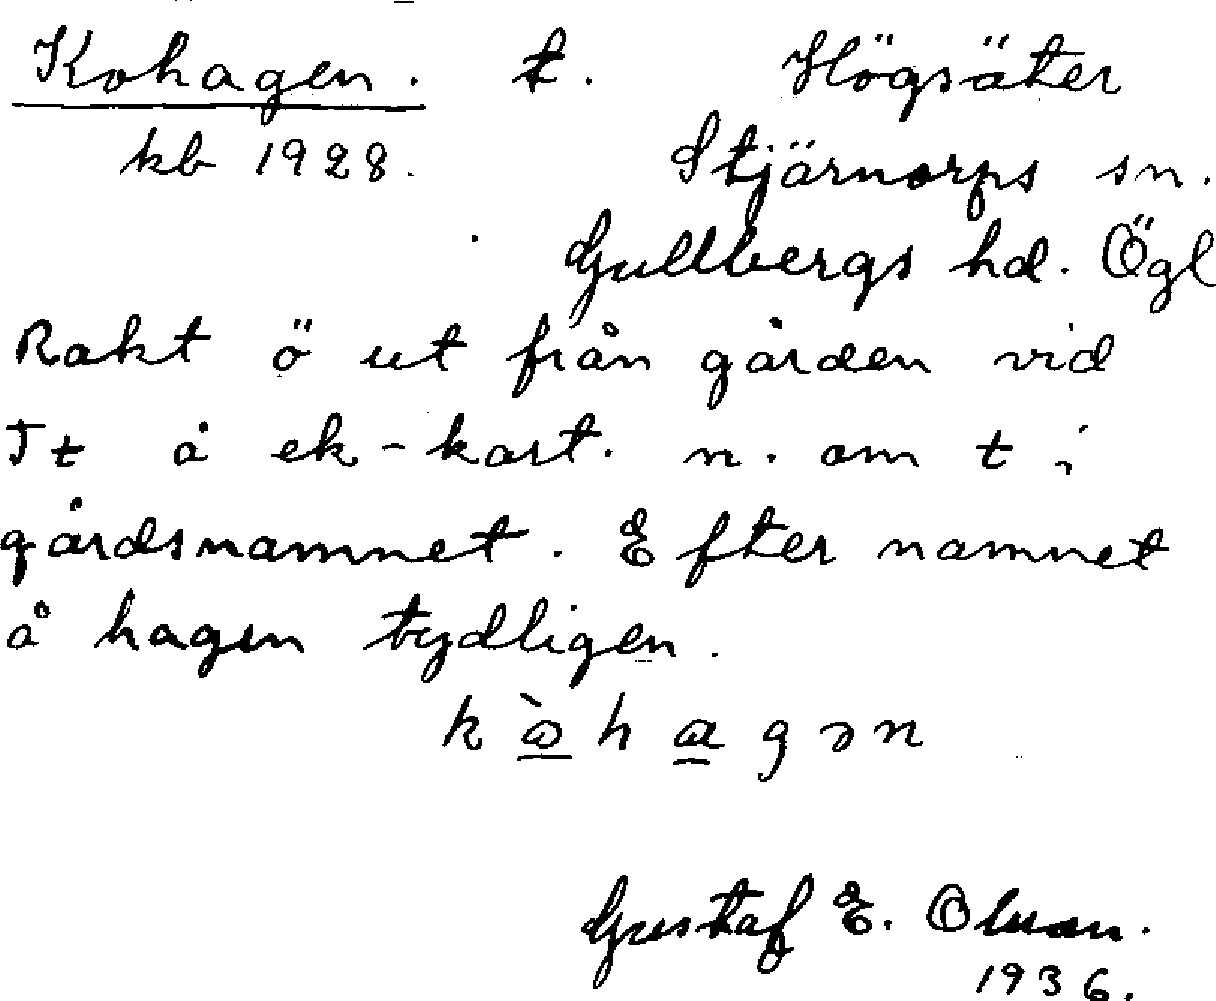 Kohagen. t. Högsäter
kb 1928. Stjärnorps sn.
Gullbergs hd. Ögl
Rakt ö ut från gården vid
Tt å ek-kart. n. om t i
gårdsnamnet. Efter namnet
å hagen tydligen.
Gustaf E. Olsson.
1936.